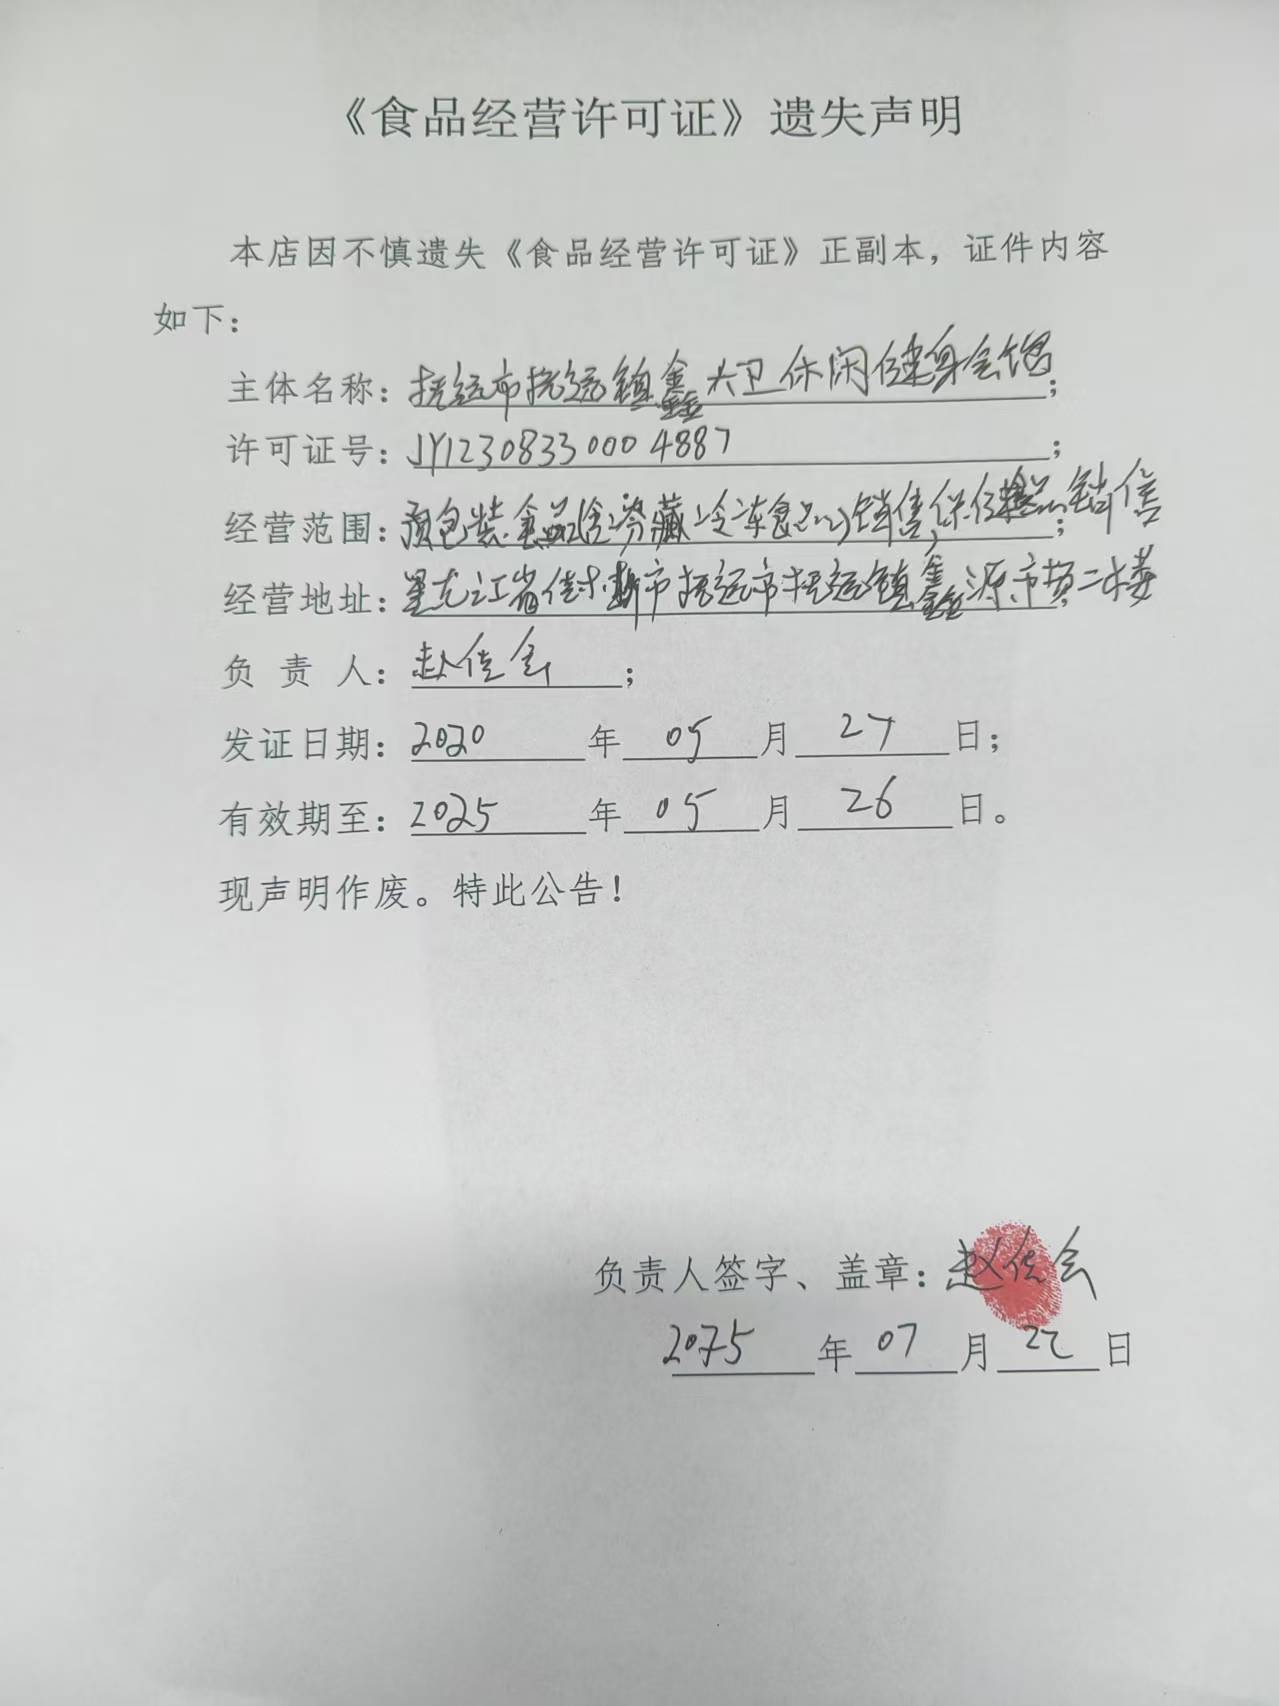 《食品经营许可证》遗失声明
本店因不慎遗失《食品经营许可证》正副本，证件内容
如下：
主体名称：抚远市抚远镇鑫大卫休闲健身会馆；
许可证号：JY12308330004887；
经营范围：预包装食品(含冷藏冷冻食品)销售，保健食品销售；
经营地址：黑龙江省佳木斯市抚远市抚远镇鑫源市场二楼
负 责 人：赵佳会；
发证日期：2020年05月27日；
有效期至：2025年05月26日。
现声明作废。特此公告！
负责人签字、盖章：赵佳会
2025年07月22日